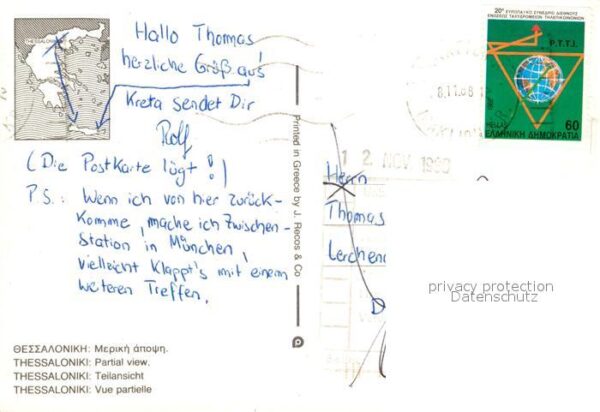 THESSALONIKI
Hallo Thomas!
herzliche Grüße aus
Kreta sendet Dir
Rolf
(Die Postkarte lügt!)
P.S.: Wenn ich von hier zurück-
komme, mache ich Zwischen-
station in München,
vielleicht klappt's mit einem
weiteren Treffen.
ΘΕΣΣΑΛΟΝΙΚΗ: Μερική άποψη.
THESSALONIKI: Partial view.
THESSALONIKI: Teilansicht
THESSALONIKI: Vue partielle
Printed in Greece by J. Recos & Co
20° ΕΥΡΩΠΑΪΚΟ ΣΥΝΕΔΡΙΟ ΔΙΕΘΝΟΥΣ
ΕΝΩΣΕΩΣ ΤΑΧΥΔΡΟΜΕΙΩΝ ΤΗΛΕΠΙΚΟΙΝΩΝΙΩΝ
P.T.T.I.
60
ΕΛΛΗΝΙΚΗ ΔΗΜΟΚΡΑΤΙΑ
12 NOV
Herrn
Thomas
privacy protection
Datenschutz